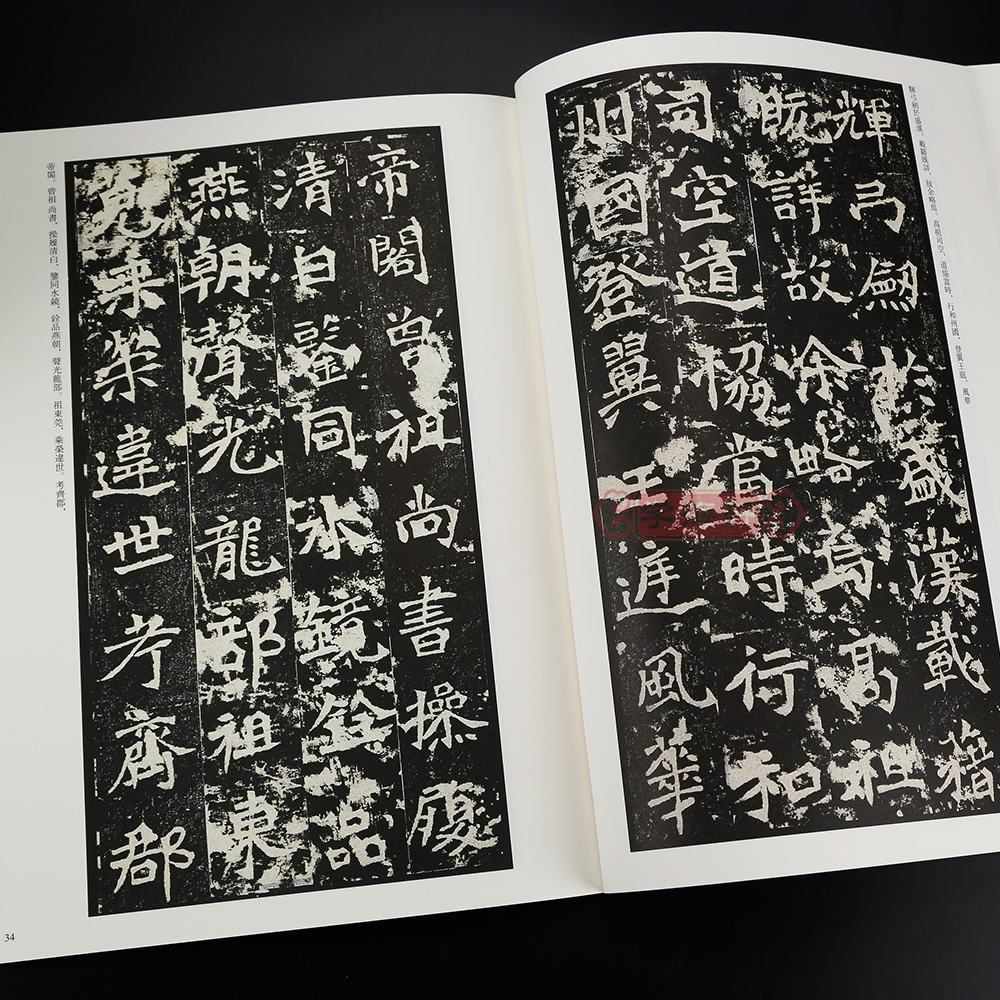 輝弓劍於盛漢。載籍既詳，故余略焉。高祖司空，道協當時，行和州國，登翼王庭，風華
輝弓劍於盛漢載籍
既詳故余略焉高祖
司空道協當時行和
州國登翼王庭風華
帝閣曾祖尚書操履
清白鑒同水鏡銓品
燕朝聲光龍部祖東
莞乘榮違世考齊郡
帝閣。曾祖尚書，操履清白，鑒同水鏡，銓品燕朝，聲光龍部。祖東莞，乘榮違世。考齊郡，
34